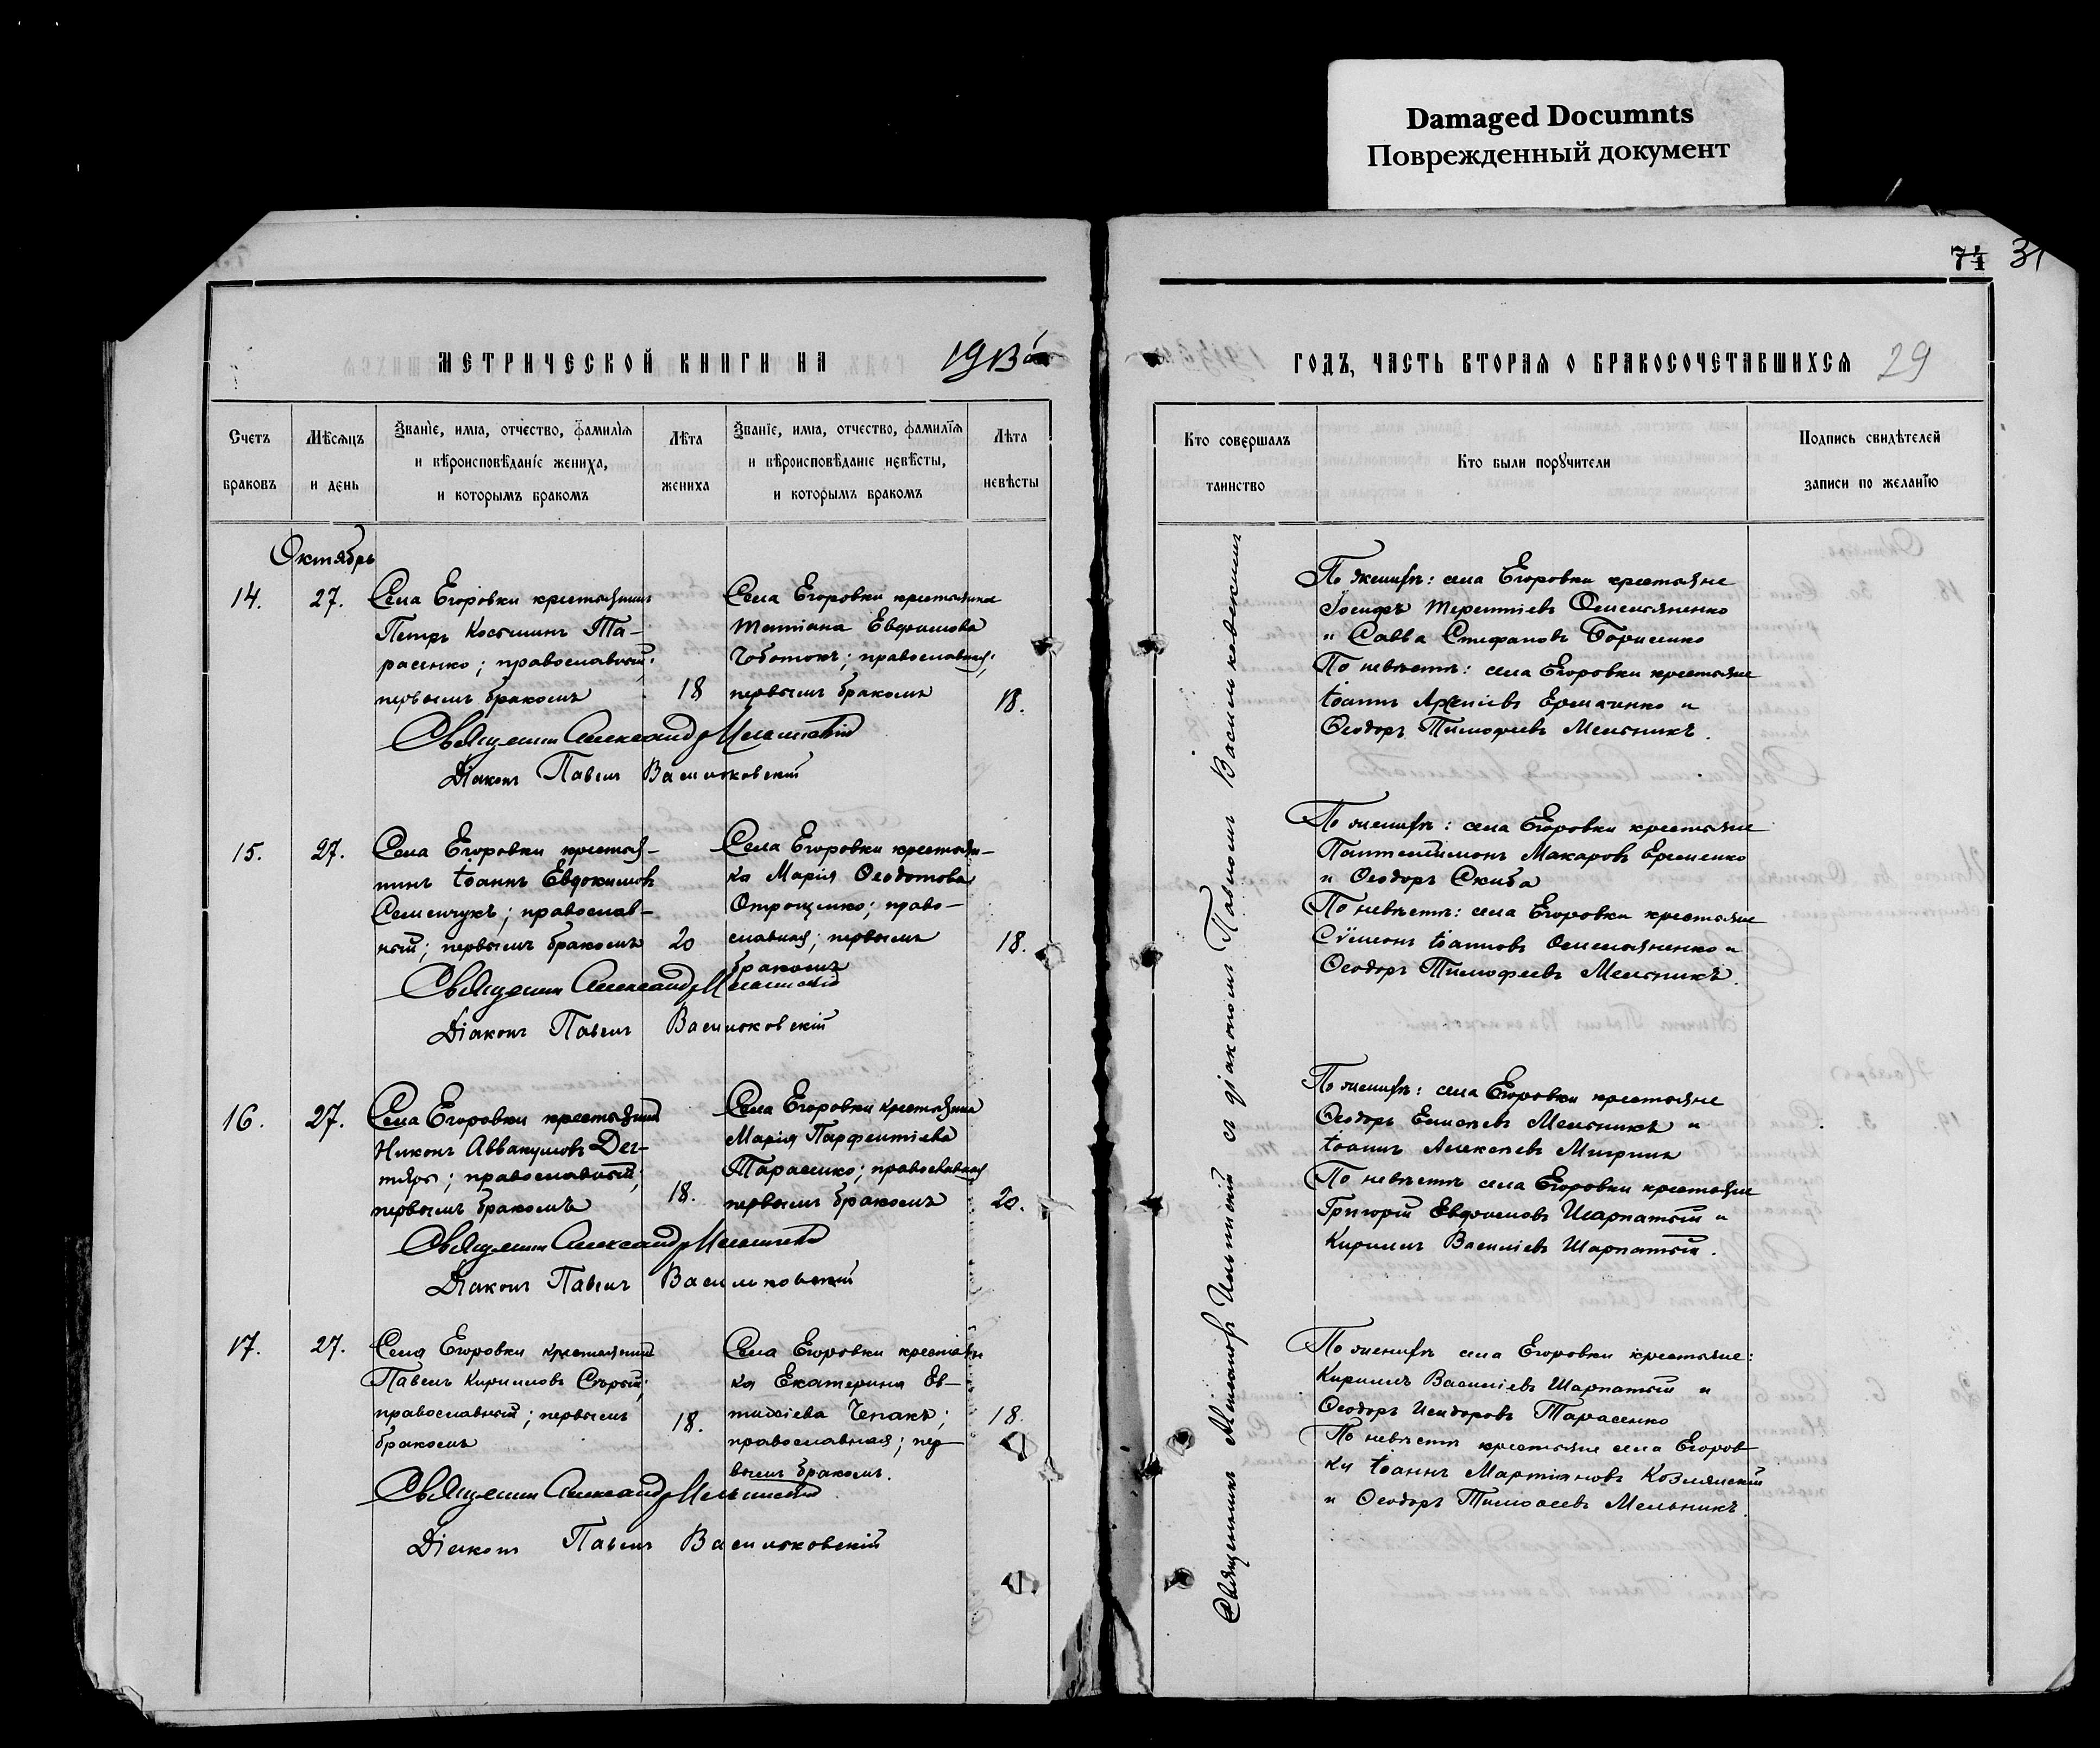 Damaged Documnts
Поврежденный документ
71 31
МЕТРИЧЕСКОЙ КНИГИ НА 1913й
ГОДЪ, ЧАСТЬ ВТОРАЯ О БРАКОСОЧЕТАВШИХСЯ 29
Счетъ браковъ
Мѣсяцъ и день
Званіе, имя, отчество, фамилія и вѣроисповѣданіе жениха, и которымъ бракомъ
Лѣта жениха
Званіе, имя, отчество, фамилія и вѣроисповѣданіе невѣсты, и которымъ бракомъ
Лѣта невѣсты
Кто совершалъ таинство
Кто были поручители
Подпись свидѣтелей записи по желанію
Октябрь
14.
27.
Села Егоровки крестьянинъ
Петръ Косминъ Та-
расенко; православный;
первымъ бракомъ
18
Села Егоровки крестьянка
Татіана Евфимова
Чоботокъ; православная;
первымъ бракомъ
18.
Священникъ Александръ
Діаконъ Павелъ Васильковскій
15.
27.
Села Егоровки крестья-
нинъ Іоаннъ Евдокимовъ
Семенчукъ; православ-
ный; первымъ бракомъ
20
Села Егоровки крестьян-
ка Марія Ѳеодотова
Отрощенко; право-
славная; первымъ
бракомъ
18.
Священникъ Александръ
Діаконъ Павелъ Васильковскій
16.
27.
Села Егоровки крестьянинъ
Никонъ Аввакумовъ Дег-
тярь; православный;
первымъ бракомъ
18.
Села Егоровки крестьянка
Марія Парфентіева
Тарасенко; православная
первымъ бракомъ
20.
Священникъ Александръ
Діаконъ Павелъ Васильковскій
17.
27.
Села Егоровки крестьянинъ
Павелъ Кирилловъ Сѣрый;
православный; первымъ
бракомъ
18.
Села Егоровки крестьян-
ка Екатерина Ев-
тихіева Чепакъ;
православная; пер-
вымъ бракомъ.
18.
Священникъ Александръ
Діаконъ Павелъ Васильковскій
Священникъ съ діакономъ Павломъ Васильковскимъ
По женихѣ: села Егоровки крестьяне
Іосифъ Терентіевъ Омельяненко
и Савва Стефановъ Борисенко
По невѣстѣ: села Егоровки крестьяне
Іоаннъ Арсеніевъ Ермаченко и
Ѳеодоръ Тимофеевъ Мельникъ.
По женихѣ: села Егоровки крестьяне
Пантелеимонъ Макаровъ Еременко
и Ѳеодоръ Скиба
По невѣстѣ: села Егоровки крестьяне
Сѵмеонъ Іоанновъ Омельяненко и
Ѳеодоръ Тимофеевъ Мельникъ.
По женихѣ: села Егоровки крестьяне
Ѳеодоръ Елисеевъ Мельникъ и
Іоаннъ Алексеевъ
По невѣстѣ села Егоровки крестьяне
Григорій Евфимовъ Шарпатый и
Кириллъ Василіевъ Шарпатый.
По женихѣ села Егоровки крестьяне:
Кириллъ Василіевъ Шарпатый и
Ѳеодоръ Исидоровъ Тарасенко
По невѣстѣ крестьяне села Егоров-
ки Іоаннъ Мартіановъ Козлянскій
и Ѳеодоръ Тимофеевъ Мельникъ.